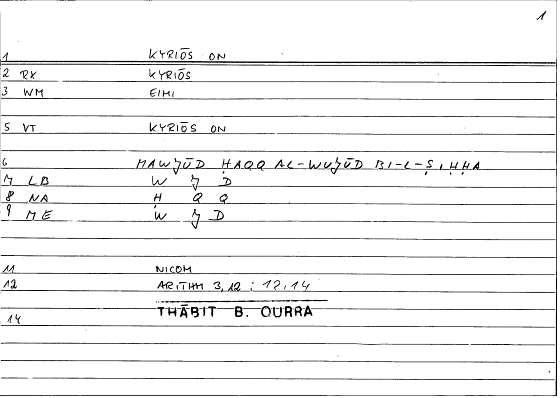 1
1 KYRIŌS ON
2 RX KYRIŌS
3 WM EIMI
5 VT KYRIŌS ON
6 MAWJŪD ḤAQQ AL-WUJŪD BI-L-ṢIḤḤA
7 LB W J D
8 NA Ḥ Q Q
9 ME W J D
11 NICOM
12 ARITHM 3,12 : 12,14
THĀBIT B. QURRA
14